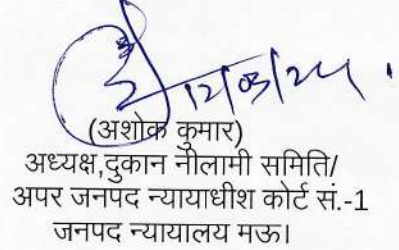 12/03/24.
(अशोक कुमार)
अध्यक्ष,दुकान नीलामी समिति/
अपर जनपद न्यायाधीश कोर्ट सं.-1
जनपद न्यायालय मऊ।